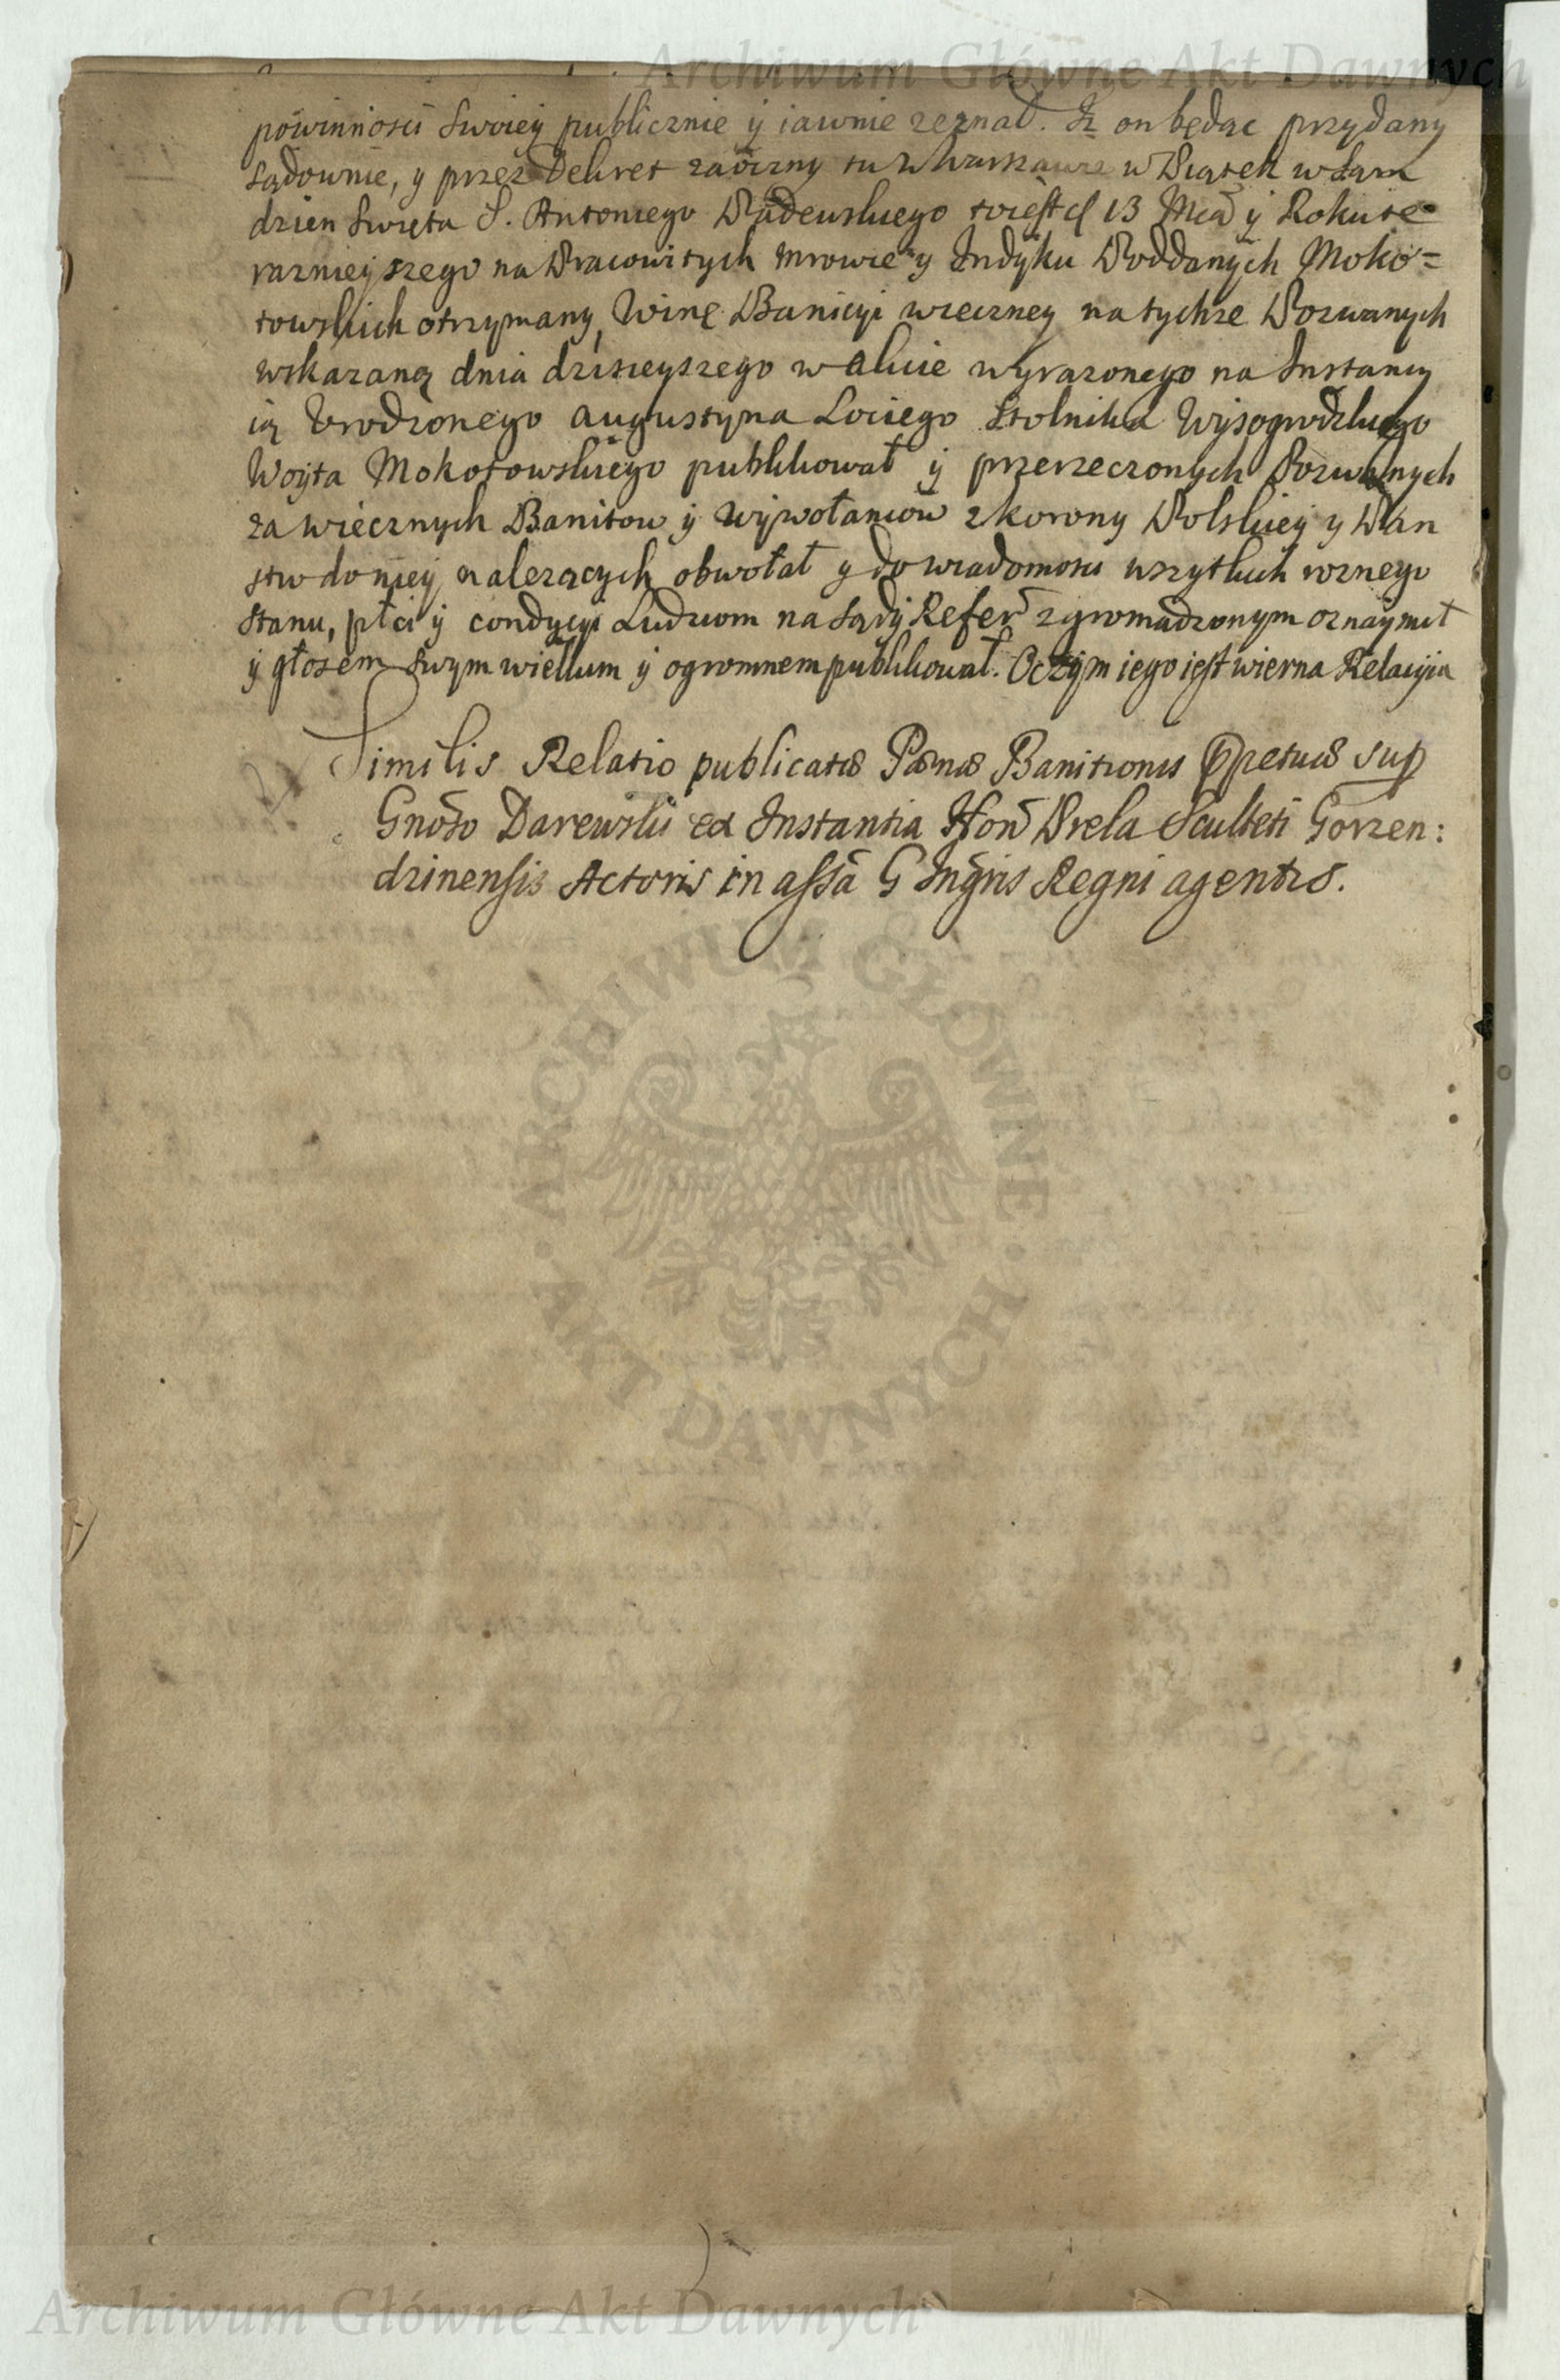 Archiwum Główne Akt Dawnych
powinnosci Swoiey publicznie ÿ iawnie zeznał. Iż on będąc przydany
sądownie, y przez Dekret zaoczny tu w Warszawie w Piątek w sam
dzien Swięta S. Antoniego Padewskiego to iest d 13 Mca ÿ Roku te
raznieyszego na Pracowitych Mrowie y Indyku Poddanych Moko=
towskich otrzymany, Winę Banicyi wieczney na tychze Pozwanych
wskazaną dnia dzisieyszego w akcie wyrazonego na Instancy
ią Urodzonego Augustyna Lociego Stolnika Wysogrodzkiego
Woyta Mokotowskiego publikował ÿ przerzeczonych Pozwanych
za wiecznych Banitow ÿ Wywołancow z Korony Polskiey y Pan
stw do niey nalezących obwołał y do wiadomosci wszytkich roznego
stanu, płci ÿ condycyi Ludziom na sądy Refer zgromadzonym oznaymił
ÿ głosem swym wielkim ÿ ogromnem publikował. O czym iego iest wierna Relacyia
Similis Relatio publicatæ Pœnæ Banitionis ppetuæ sup
Gnoso Darewski ex Instantia Hon Prela Sculteti Gorzen:
dzinensis Actoris in assa G Ingris Regni agentis.
ARCHIWUM GŁÓWNE · AKT DAWNYCH ·
Archiwum Główne Akt Dawnych